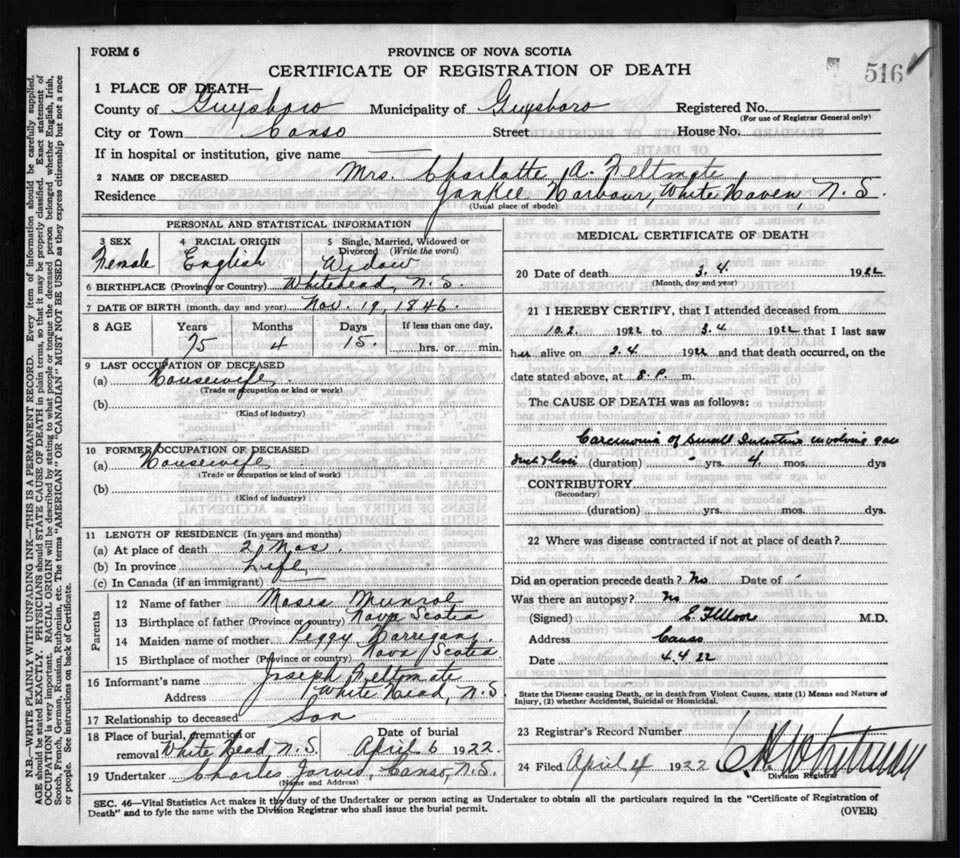 FORM 6
PROVINCE OF NOVA SCOTIA
516
CERTIFICATE OF REGISTRATION OF DEATH
1 PLACE OF DEATH—
County of Guysboro Municipality of Guysboro Registered No.
(For use of Registrar General only)
City or Town Canso Street House No.
If in hospital or institution, give name
2 NAME OF DECEASED Mrs. Charlotte A. Feltmate
Residence Yankee Harbour, White Haven, N. S.
(Usual place of abode)
PERSONAL AND STATISTICAL INFORMATION
3 SEX 4 RACIAL ORIGIN 5 Single, Married, Widowed or Divorced (Write the word)
Female English Widow
6 BIRTHPLACE (Province or Country) Whitehead, N. S.
7 DATE OF BIRTH (month, day and year) Nov. 19, 1846
8 AGE Years Months Days If less than one day,
75 4 15 hrs. or min.
9 LAST OCCUPATION OF DECEASED
(a) Housewife
(Trade or occupation or kind of work)
(b)
(Kind of industry)
10 FORMER OCCUPATION OF DECEASED
(a) Housewife
(Trade or occupation or kind of work)
(b)
(Kind of industry)
11 LENGTH OF RESIDENCE (In years and months)
(a) At place of death 2 Mos.
(b) In province Life
(c) In Canada (if an immigrant)
Parents
12 Name of father Moses Munroe
13 Birthplace of father (Province or country) Nova Scotia
14 Maiden name of mother Peggy
15 Birthplace of mother (Province or country) Nova Scotia
16 Informant's name Joseph Feltmate
Address White Head, N. S.
17 Relationship to deceased Son
18 Place of burial, cremation or removal White Head, N. S. Date of burial April 6 1922
19 Undertaker Charles Jarvis, Canso, N. S.
(Name and Address)
MEDICAL CERTIFICATE OF DEATH
20 Date of death 3. 4. 1922
(Month, day and year)
21 I HEREBY CERTIFY, that I attended deceased from
10.2. 1922 to 3.4 1922 that I last saw
her alive on 3.4 1922 and that death occurred, on the
date stated above, at 8. P. m.
The CAUSE OF DEATH was as follows:
Carcinoma of Small Intestine involving gall
duct & liver (duration) yrs. 4 mos. dys
CONTRIBUTORY
(Secondary)
(duration) yrs. mos. dys.
22 Where was disease contracted if not at place of death?
Did an operation precede death? No Date of
Was there an autopsy? No
(Signed) M.D.
Address Canso
Date 4.4 22
State the Disease causing Death, or in death from Violent Causes, state (1) Means and Nature of
Injury, (2) whether Accidental, Suicidal or Homicidal.
23 Registrar's Record Number
24 Filed April 4 1922 Whitman
Division Registrar
SEC. 46—Vital Statistics Act makes it the duty of the Undertaker or person acting as Undertaker to obtain all the particulars required in the "Certificate of Registration of
Death" and to fyle the same with the Division Registrar who shall issue the burial permit.
(OVER)
N.B.—WRITE PLAINLY WITH UNFADING INK—THIS IS A PERMANENT RECORD. Every item of information should be carefully supplied.
AGE should be stated EXACTLY. PHYSICIANS should STATE CAUSE OF DEATH in plain terms, so that it may be properly classified. Exact statement of
OCCUPATION is very important. RACIAL ORIGIN will be described by stating to what people or tongue the deceased person belonged whether English, Irish,
Scotch, French, German, Russian, Ruthenian, etc. The terms "AMERICAN" OR "CANADIAN" MUST NOT BE USED as they express citizenship but not a race
or people. See instructions on back of Certificate.